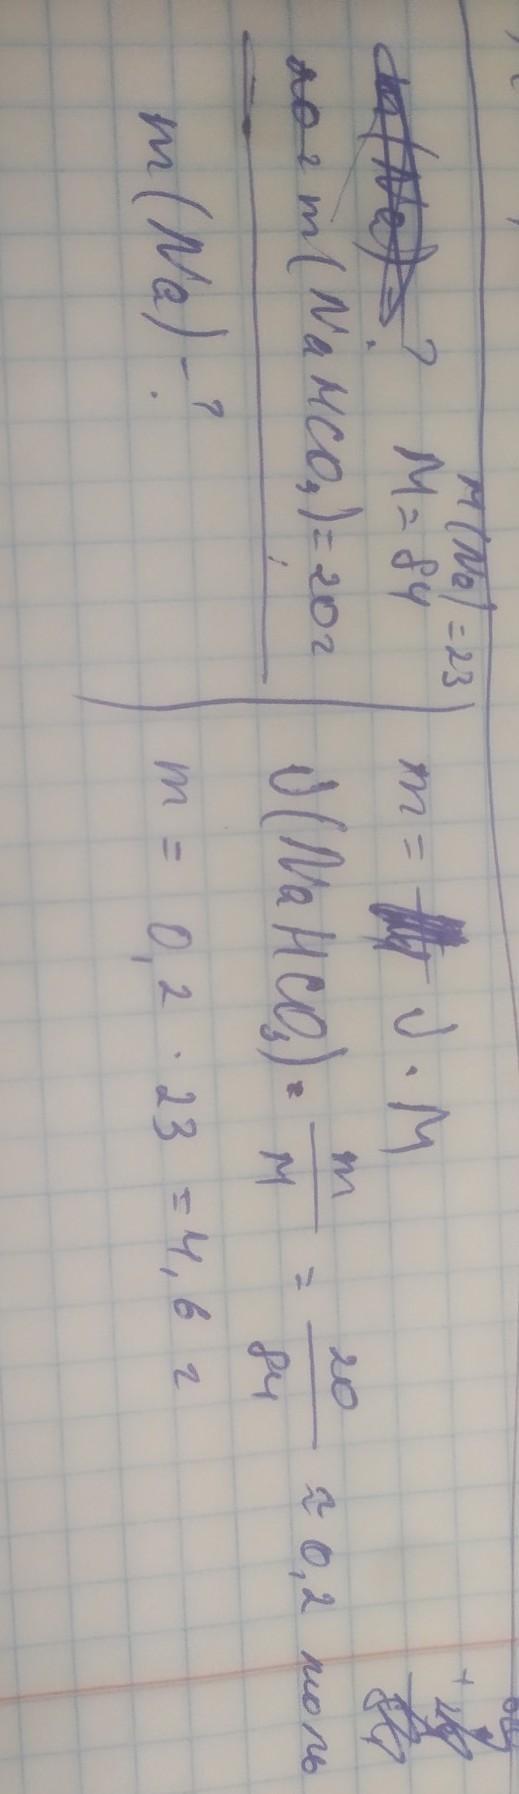 M(Na) = 23
M = 84
m(NaHCO₃) = 20г
m(Na) - ?
m = ν · M
ν(NaHCO₃) = m/M = 20/84 ≈ 0,2 моль
m = 0,2 · 23 = 4,6 г